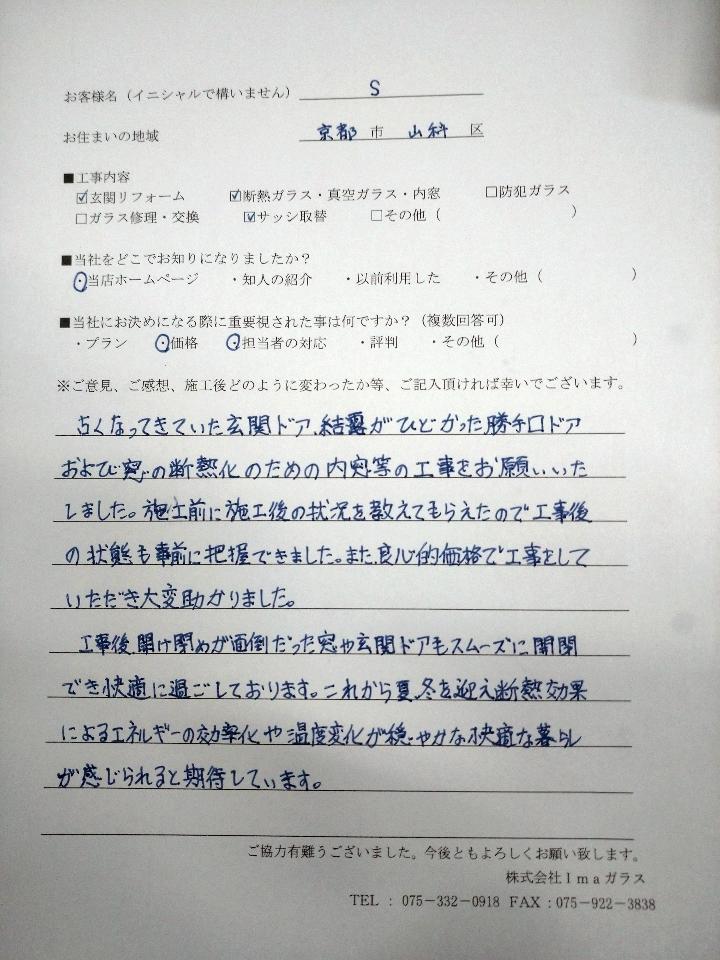 お客様名（イニシャルで構いません） S
お住まいの地域 京都 市 山科 区
■工事内容
☑玄関リフォーム ☑断熱ガラス・真空ガラス・内窓 □防犯ガラス
□ガラス修理・交換 ☑サッシ取替 □その他（ ）
■当社をどこでお知りになりましたか？
・当店ホームページ ・知人の紹介 ・以前利用した ・その他（ ）
■当社にお決めになる際に重要視された事は何ですか？（複数回答可）
・プラン ・価格 ・担当者の対応 ・評判 ・その他（ ）
※ご意見、ご感想、施工後どのように変わったか等、ご記入頂ければ幸いでございます。
古くなってきていた玄関ドア、結露がひどかった勝手口ドア
および窓の断熱化のための内窓等の工事をお願いいた
しました。施工前に施工後の状況を教えてもらえたので工事後
の状態も事前に把握できました。また、良心的価格で工事をして
いただき大変助かりました。
工事後、開け閉めが面倒だった窓や玄関ドアもスムーズに開閉
でき快適に過ごしております。これから夏、冬を迎え断熱効果
によるエネルギーの効率化や温度変化が穏やかな快適な暮らし
が感じられると期待しています。
ご協力有難うございました。今後ともよろしくお願い致します。
株式会社Ｉｍａガラス
TEL : 075−332−0918 FAX : 075−922−3838